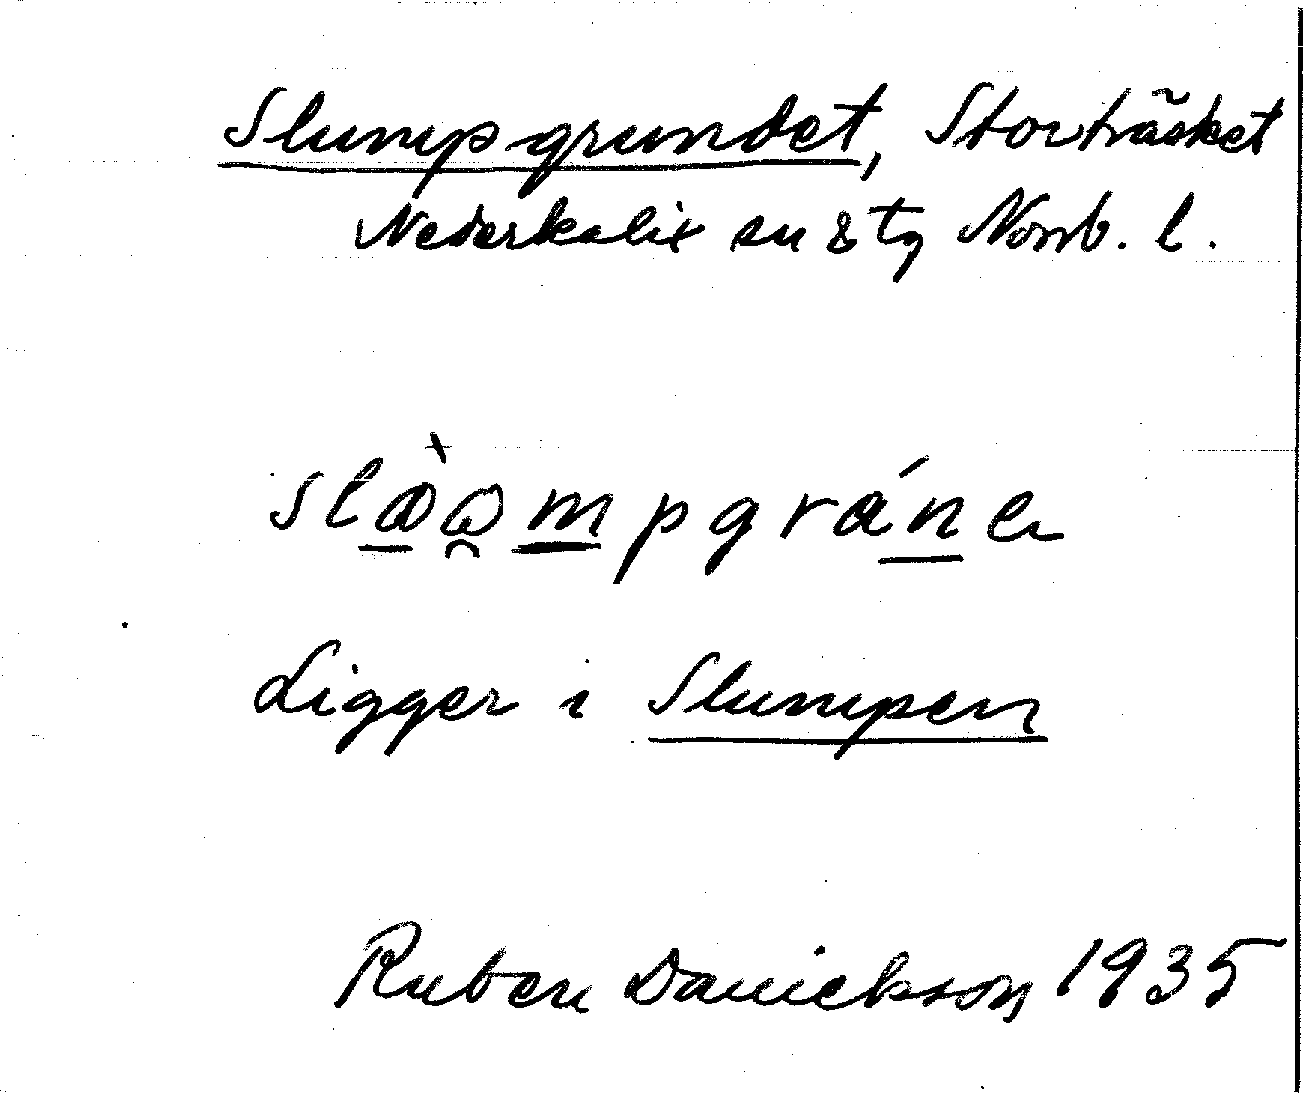 Slumpgrundet, Storträsket
Nederkalix sn & tg Norrb. l.
Ligger i Slumpen
Ruben Danielsson 1935